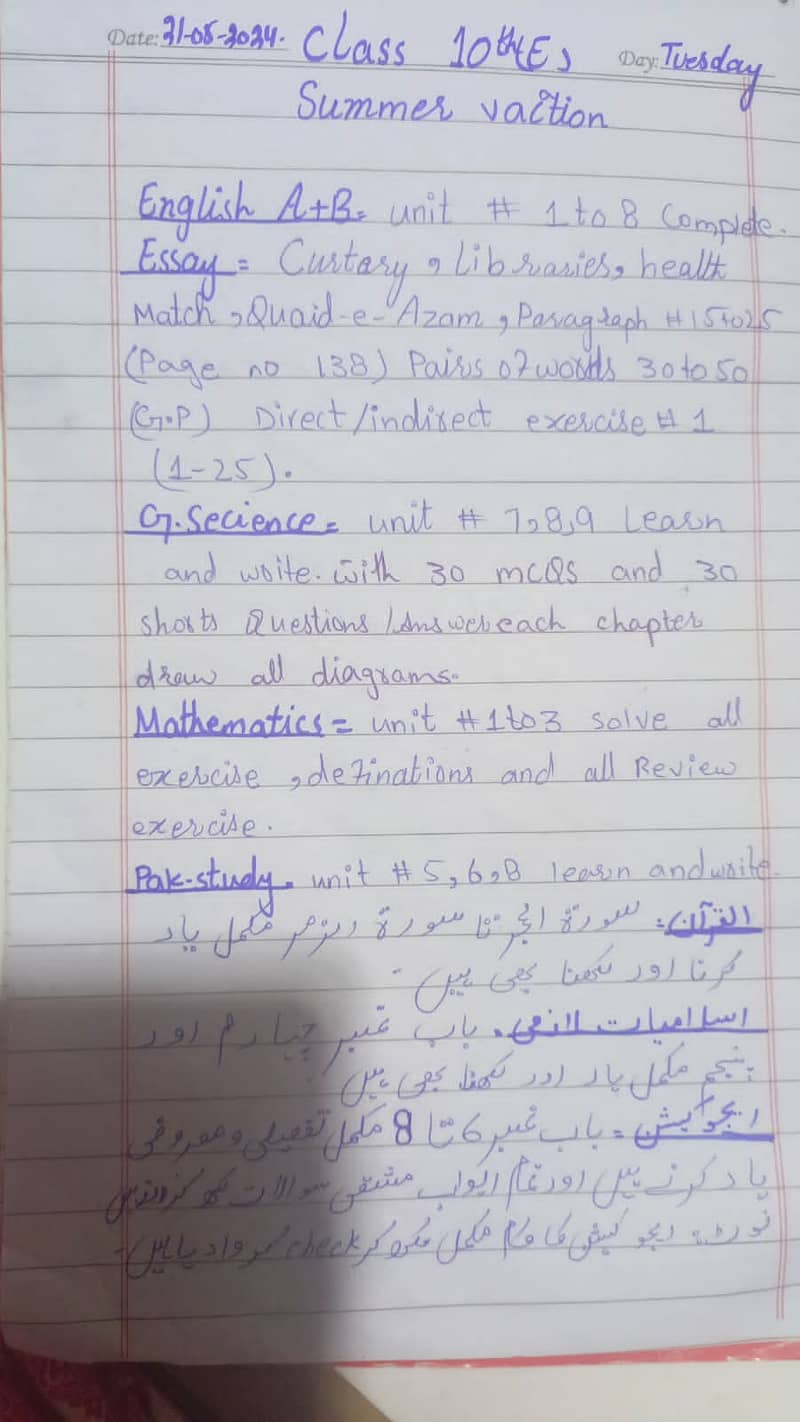 Date: 31-05-2024. Class 10th(E) Day: Tuesday
Summer vaction
English A+B= unit # 1 to 8 Complete.
Essay = Curtary, Libraries, health
Match, Quaid-e-Azam, Paragraph # 15to25
(Page no 138) Pairs of words 30 to 50
(G.P) Direct/indirect exercise # 1
(1-25).
G.Secience= unit # 7,8,9 Learn
and write. with 30 mcQs and 30
shorts Questions /Answer each chapter
draw all diagrams.
Mathematics= unit #1to3 solve all
exercise, definations and all Review
exercise.
Pak-study. unit # 5,6,8 learn and write
القرآن: سورۃ الحجر تا سورۃ الزمر مکمل یاد
کرنا اور لکھنا بھی ہیں-
اسلامیات لازمی. باب نمبر چہارم اور
پنجم مکمل یاد اور لکھنا بھی ہیں
ایجوکیشن = باب نمبر 6 تا 8 مکمل تفصیلی و معروضی
یاد کرنے ہیں اور تمام ابواب مشقی سوالات لکھ کر
نوٹ: ایجوکیشن کا کام مکمل لکھ کر check کروا